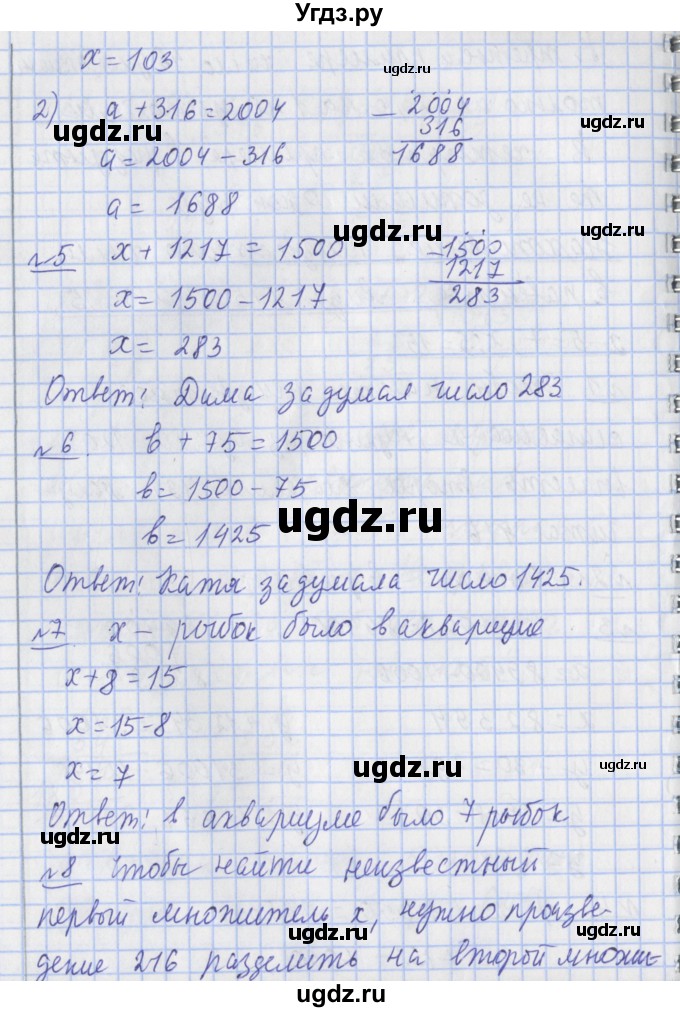 Угдз.ру
x = 103
2) a + 316 = 2004
a = 2004 - 316
a = 1688
- 2004
316
1688
№5 x + 1217 = 1500
x = 1500 - 1217
x = 283
- 1500
1217
283
Ответ: Дима задумал число 283
№6. в + 75 = 1500
в = 1500 - 75
в = 1425
Ответ: Катя задумала число 1425.
№7 x - рыбок было в аквариуме
x + 8 = 15
x = 15 - 8
x = 7
Ответ: в аквариуме было 7 рыбок
№8 Чтобы найти неизвестный
первый множитель x, нужно произве-
дение 216 разделить на второй множи-
ugdz.ru
ugdz.ru
ugdz.ru
ugdz.ru
ugdz.ru
ugdz.ru
ugdz.ru
ugdz.ru
ugdz.ru
ugdz.ru
ugdz.ru
ugdz.ru